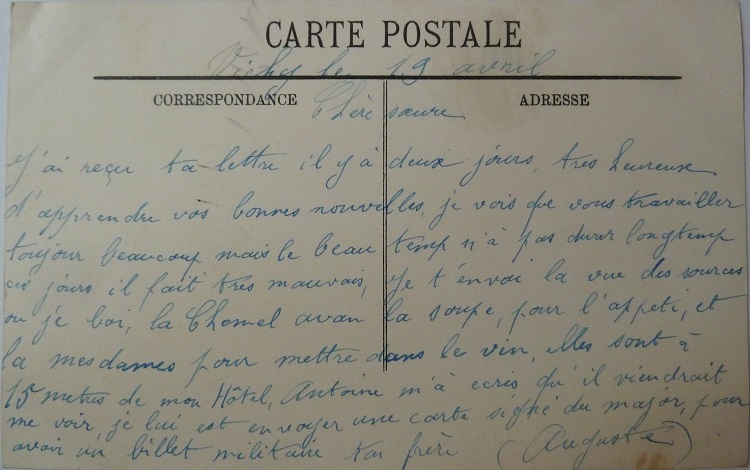 CARTE POSTALE
Vichy le 19 avril
CORRESPONDANCE
ADRESSE
Chère sœure
J'ai reçu ta lettre il y à deux jours, tres heureuse
d'apprendre vos bonnes nouvelles, je vois que vous travailler
toujour beaucoup mais le beau temp n'à pas durer longtemp
ces jours il fait tres mauvais, je t'envoi la vue des sources
ou je boi, la Chomel avan la soupe, pour l'appeti, et
la mesdames pour mettre dans le vin, elles sont à
15 metres de mon Hôtel, Antoine m'à ecris qu'il viendrait
me voir, je lui est envoyer une carte signé du major, pour
avoir un billet militaire ton frère (Auguste)